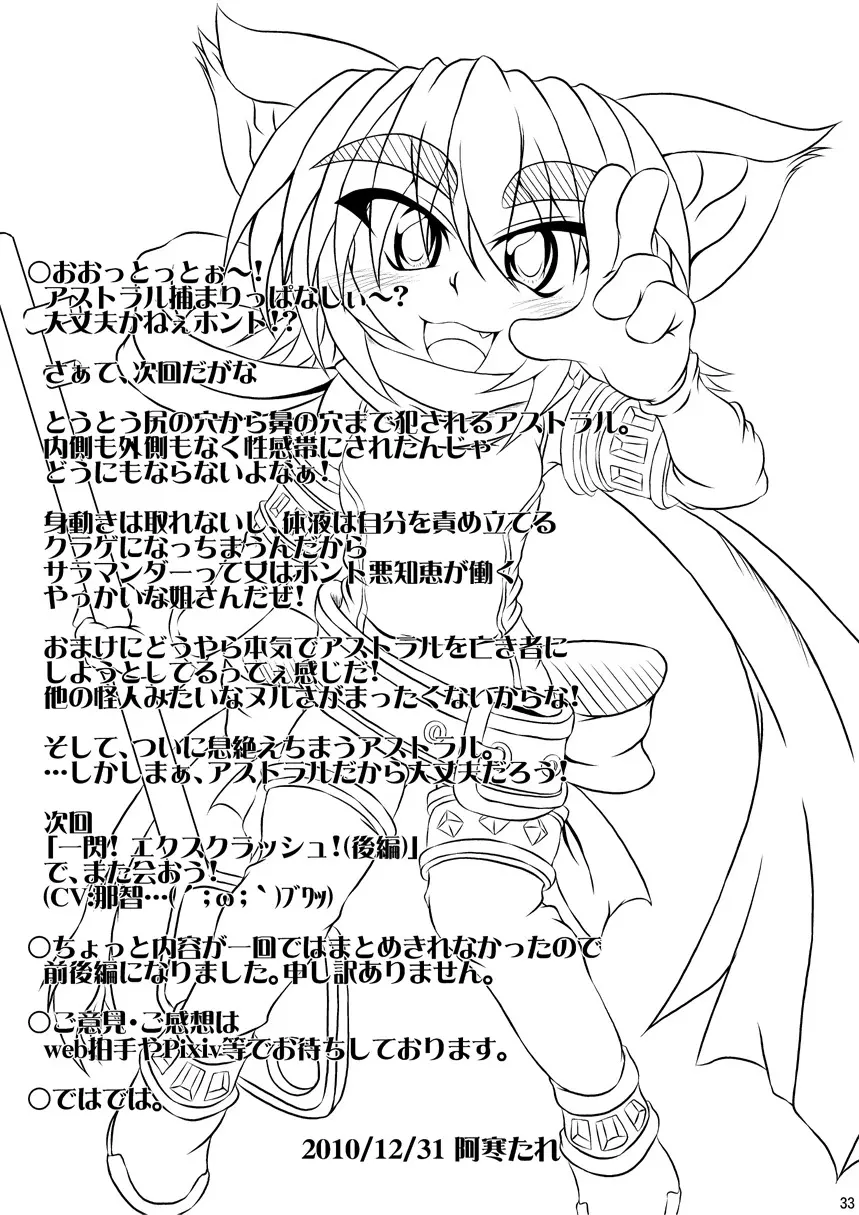 ○おおっとっとぉ～!
アストラル捕まりっぱなしぃ～?
大丈夫かねぇホント!?
さぁて、次回だがな
とうとう尻の穴から鼻の穴まで犯されるアストラル。
内側も外側もなく性感帯にされたんじゃ
どうにもならないよなぁ!
身動きは取れないし、体液は自分を責め立てる
クラゲになっちまうんだから
サラマンダーって女はホント悪知恵が働く
やっかいな姐さんだぜ!
おまけにどうやら本気でアストラルを亡き者に
しようとしてるってぇ感じだ!
他の怪人みたいなヌルさがまったくないからな!
そして、ついに息絶えちまうアストラル。
…しかしまぁ、アストラルだから大丈夫だろう!
次回
「一閃! エクスクラッシュ!(後編)」
で、また会おう!
(CV:那智…(´；ω；｀)ﾌﾞﾜｯ)
○ちょっと内容が一回ではまとめきれなかったので
前後編になりました。申し訳ありません。
○ご意見・ご感想は
web拍手やPixiv等でお待ちしております。
○ではでは。
2010/12/31 阿寒たれ
33